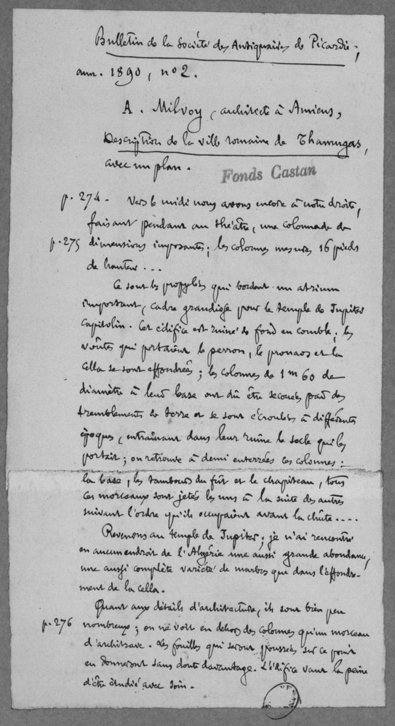 Bulletin de la Société des Antiquaires de Picardie;
ann. 1890, n° 2.
A. Milvoy, architecte à Amiens,
Description de la ville romaine de Thamugas,
avec un plan.
Fonds Castan
p. 274 - Vers le midi nous avons encore à notre droite,
faisant pendant au théâtre, une colonnade de
p. 275 dimensions imposantes; les colonnes mesurent 16 pieds
de hauteur ...
Ce sont les propylées qui bordent un atrium
important, cadre grandiose pour le temple de Jupiter
Capitolin. Cet édifice est ruiné de fond en comble; les
voûtes qui portaient le perron, le pronaos et la
cella se sont effondrées; les colonnes de 1m 60 de
diamètre à leur base ont dû être secouées par des
tremblements de terre et se sont écroulées à différentes
époques, entraînant dans leur ruine le socle qui les
portait; on retrouve à demi enterrées ces colonnes:
la base, les tambours du fût et le chapiteau, tous
ces morceaux sont jetés les uns à la suite des autres
suivant l'ordre qu'ils occupaient avant la chûte ....
Revenons au temple de Jupiter; je n'ai rencontré
en aucun endroit de l'Algérie une aussi grande abondance,
une aussi complète variété de marbres que dans l'effondre-
ment de la cella.
Quant aux détails d'architecture, ils sont bien peu
p. 276 nombreux; on ne voit en dehors des colonnes qu'un morceau
d'architrave. Les fouilles qui seront poussées sur ce point
en donneront sans doute davantage. L'édifice vaut la peine
d'être étudié avec soin.